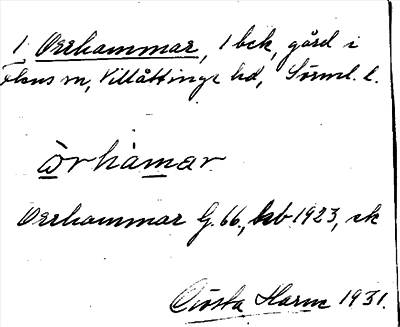 1 Orrhammar, 1 bck, gård i
Flens sn, Villåttinge hd, Sörml. l.
òrhamar
Orrhammar G. 66, kb 1923, sk
Gösta Harne 1931.